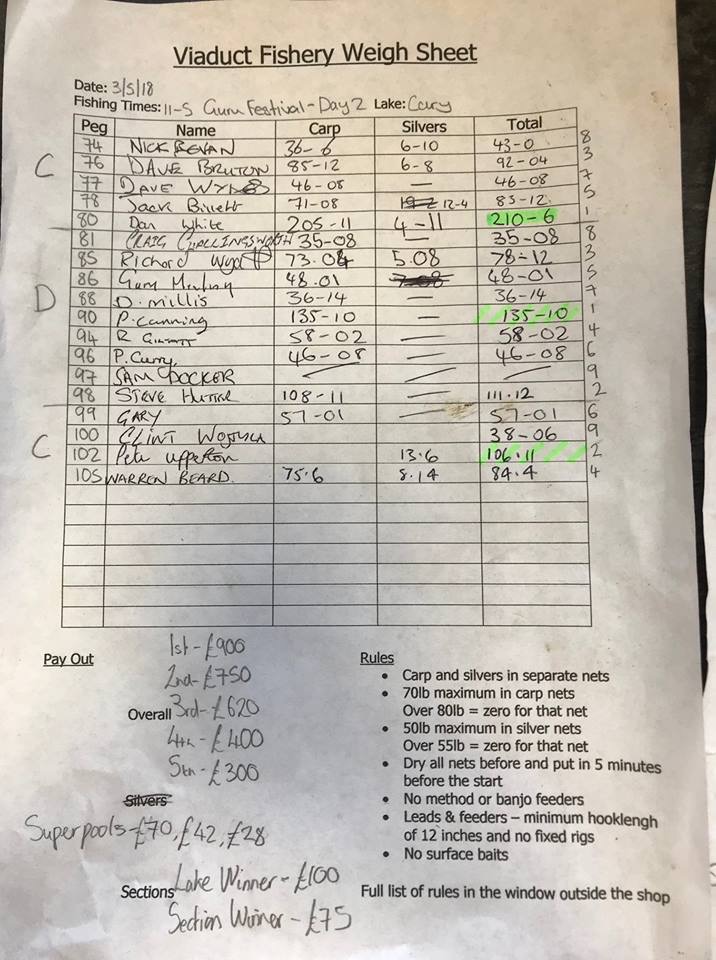 Viaduct Fishery Weigh Sheet
Date: 3/5/18
Fishing Times: 11-5 Guru Festival - Day 2 Lake: Cary
Peg Name Carp Silvers Total
74 NICK BEVAN 36-6 6-10 43-0 8
C 76 DAVE BRUTON 85-12 6-8 92-04 3
77 DAVE 46-08 — 46-08 7
78 Jack Billett 71-08 12-4 83-12 5
80 Dan White 205-11 4-11 210-6 1
81 CRAIG 35-08 — 35-08 8
85 Richard Wyatt 73.04 5.08 78-12 3
86 48.01 7-08 48-01 5
D 88 D. Millis 36-14 — 36-14 7
90 P. Canning 135-10 — 135-10 1
94 R 58-02 — 58-02 4
96 P. Curry 46-08 — 46-08 6
97 SAM DOCKER — — — 9
98 STEVE 108-11 — 111.12 2
99 GARY 57-01 — 57-01 6
100 CLINT 38-06 9
C 102 Pete Upperton 13.6 106.11 2
105 WARREN BEARD. 75.6 8.14 84.4 4
Pay Out
1st - £900
2nd - £750
Overall 3rd - £620
4th - £400
5th - £300
Silvers
Superpools - £70, £42, £28
Sections Lake Winner - £100
Section Winner - £75
Rules
• Carp and silvers in separate nets
• 70lb maximum in carp nets
Over 80lb = zero for that net
• 50lb maximum in silver nets
Over 55lb = zero for that net
• Dry all nets before and put in 5 minutes
before the start
• No method or banjo feeders
• Leads & feeders – minimum hooklengh
of 12 inches and no fixed rigs
• No surface baits
Full list of rules in the window outside the shop